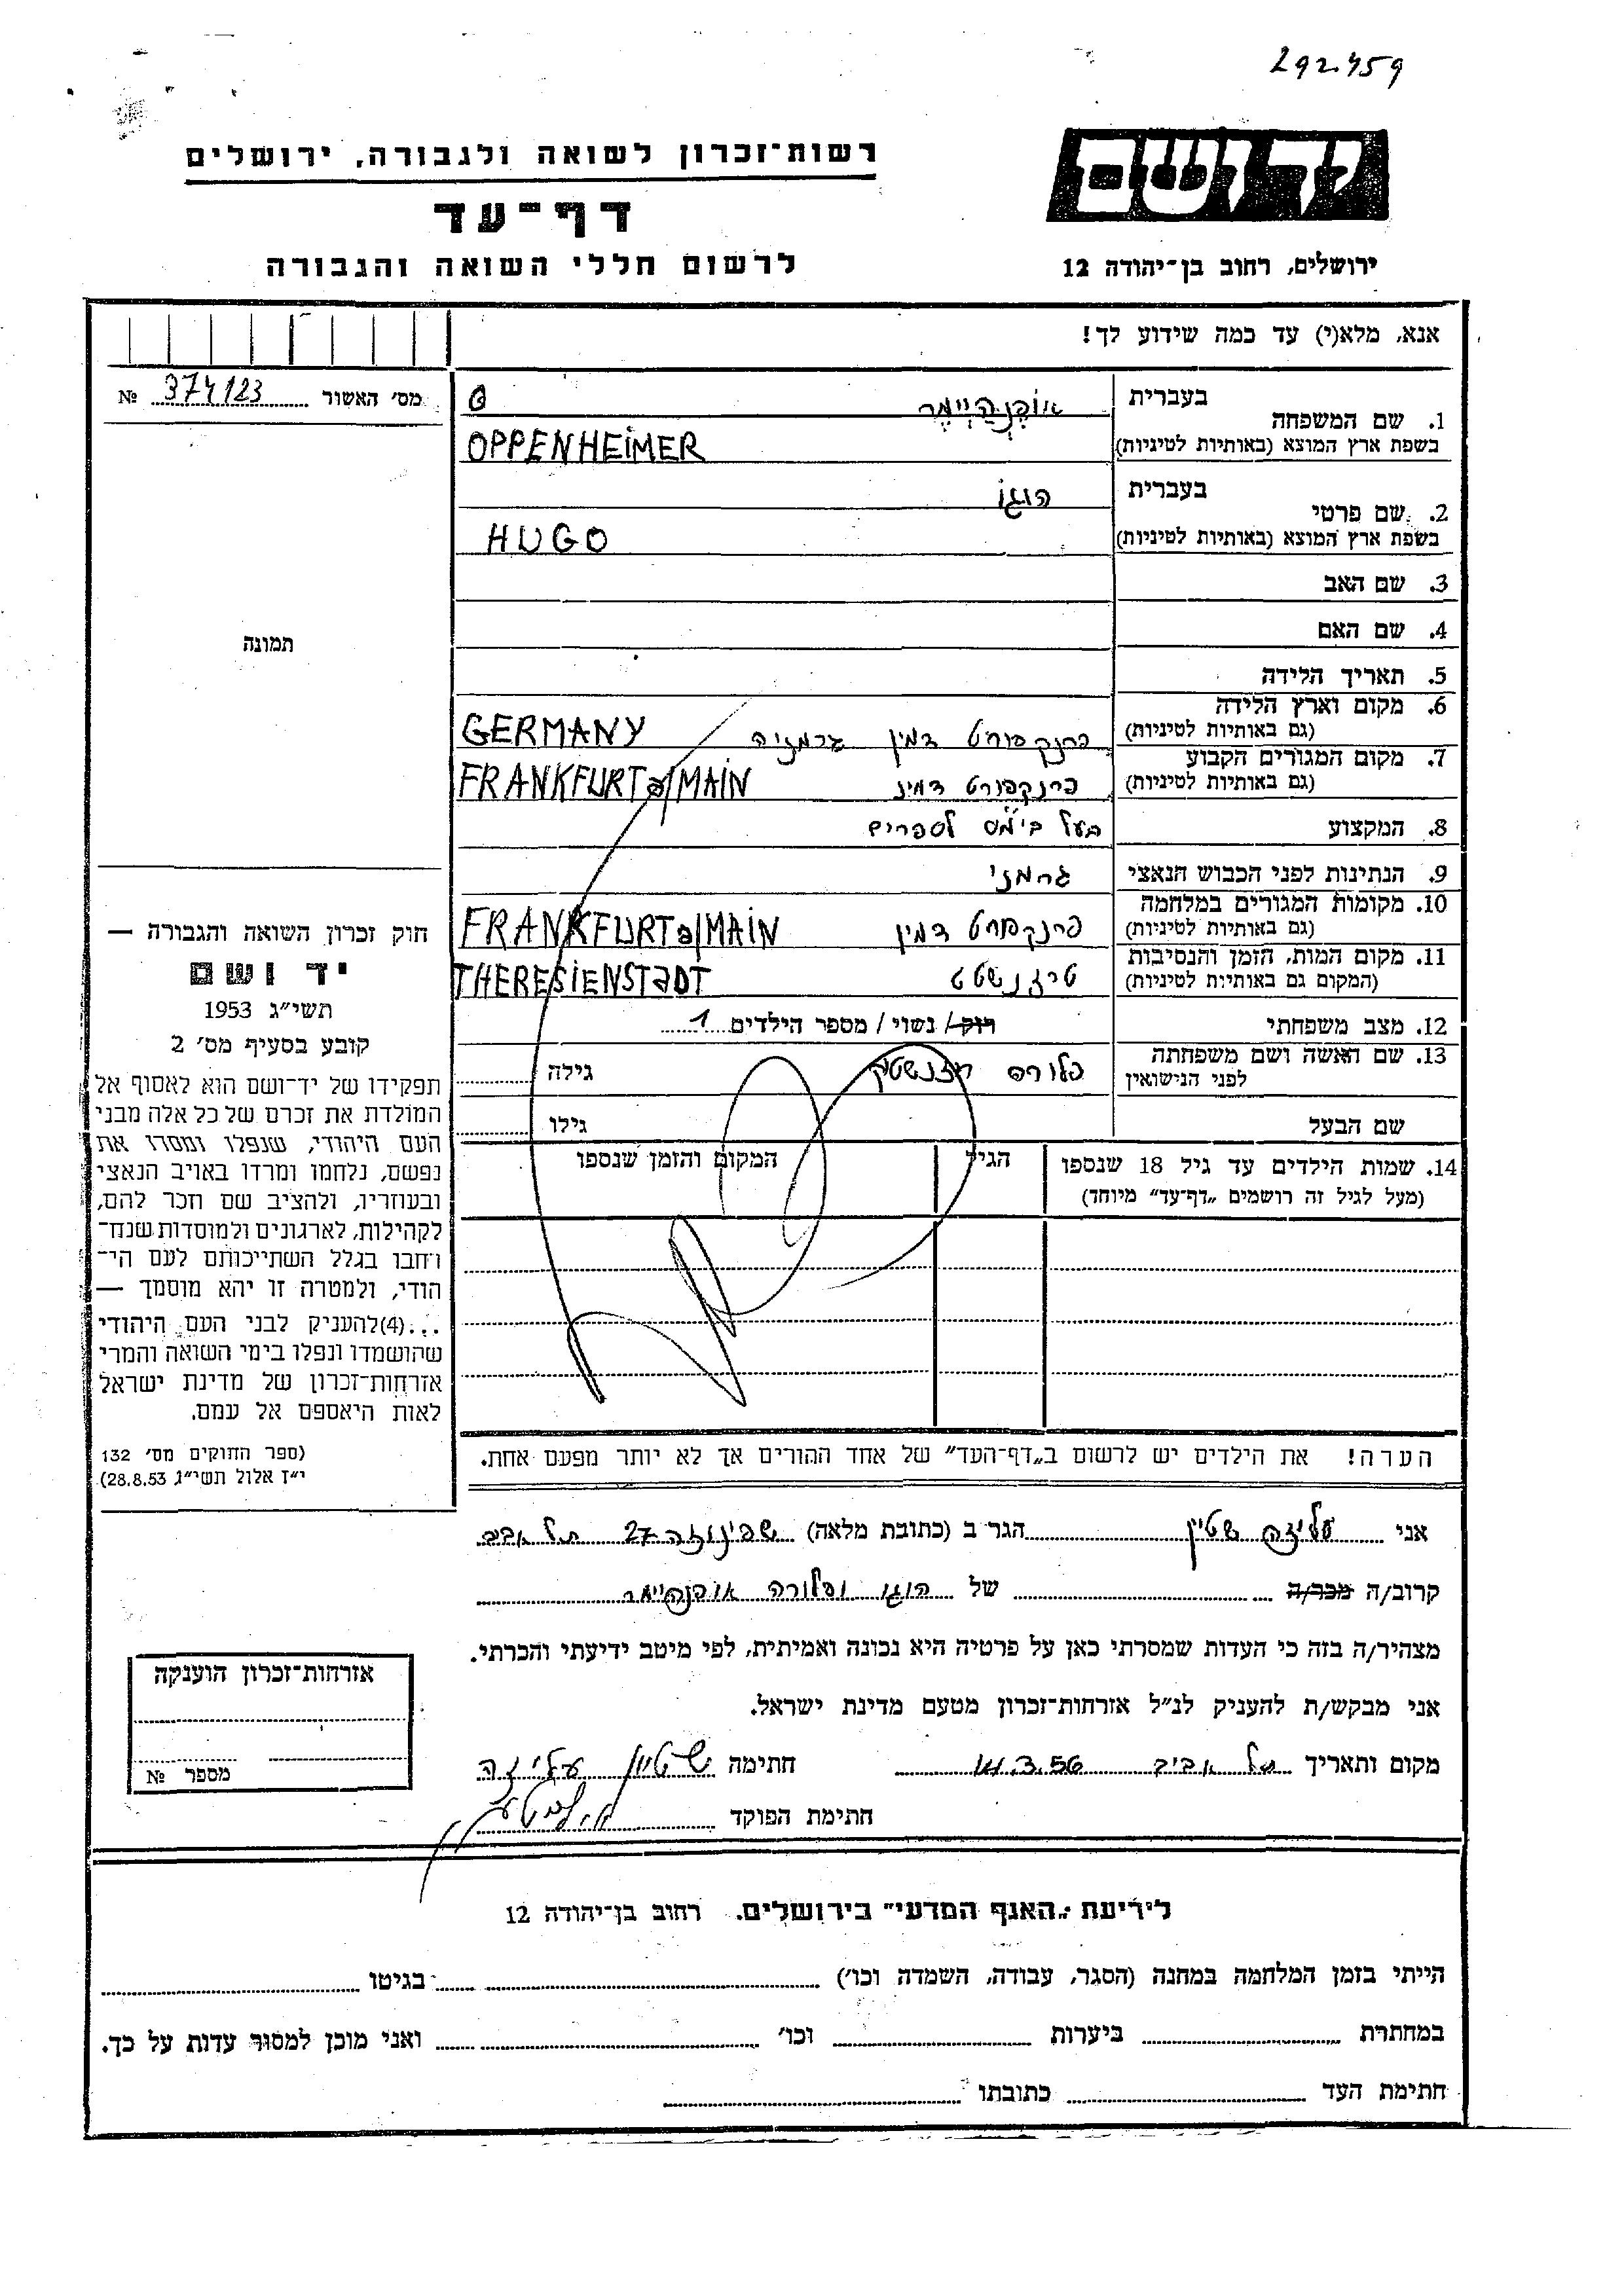 292.459
יד ושם
רשות־זכרון לשואה ולגבורה, ירושלים
דף־עד
לרשום חללי השואה והגבורה
ירושלים, רחוב בן־יהודה 12
אנא, מלא(י) עד כמה שידוע לך!
מס׳ האשור 374123 №
תמונה
1. שם המשפחה
בעברית אופנהיימר
בשפת ארץ המוצא (באותיות לטיניות) OPPENHEIMER
2. שם פרטי
בעברית הוגו
בשפת ארץ המוצא (באותיות לטיניות) HUGO
3. שם האב
4. שם האם
5. תאריך הלידה
6. מקום וארץ הלידה
(גם באותיות לטיניות) פרנקפורט דמין גרמניה GERMANY
7. מקום המגורים הקבוע
(גם באותיות לטיניות) פרנקפורט דמין FRANKFURT a/MAIN
8. המקצוע בעל בי"מס לספרים
9. הנתינות לפני הכבוש הנאצי גרמני
10. מקומות המגורים במלחמה
(גם באותיות לטיניות) פרנקפורט דמין FRANKFURT a/MAIN
11. מקום המות, הזמן והנסיבות
(המקום גם באותיות לטיניות) טרזנשטט THERESIENSTaDT
12. מצב משפחתי רוק/ נשוי/ מספר הילדים 1
13. שם האשה ושם משפחתה
לפני הנישואין פלורה גילה
שם הבעל גילו
14. שמות הילדים עד גיל 18 שנספו הגיל המקום והזמן שנספו
(מעל לגיל זה רושמים „דף־עד״ מיוחד)
הערה! את הילדים יש לרשום ב„דף־העד״ של אחד ההורים אך לא יותר מפעם אחת.
חוק זכרון השואה והגבורה —
יד ושם
תשי״ג 1953
קובע בסעיף מס׳ 2
תפקידו של יד־ושם הוא לאסוף אל
המולדת את זכרם של כל אלה מבני
העם היהודי, שנפלו ומסרו את
נפשם, נלחמו ומרדו באויב הנאצי
ובעוזריו, ולהציב שם וזכר להם,
לקהילות, לארגונים ולמוסדות שנח־
רבו בגלל השתייכותם לעם הי־
הודי, ולמטרה זו יהא מוסמך —
...(4)להעניק לבני העם היהודי
שהושמדו ונפלו בימי השואה והמרי
אזרחות־זכרון של מדינת ישראל
לאות היאספם אל עמם.
(ספר החוקים מס׳ 132
י״ז אלול תשי״ג 28.8.53)
אני עליזה שטיין הגר ב (כתובת מלאה) שפינוזה 27 תל אביב
קרוב/ה מכר/ה של הוגו ופלורה אופנהיימר
מצהיר/ה בזה כי העדות שמסרתי כאן על פרטיה היא נכונה ואמיתית, לפי מיטב ידיעתי והכרתי.
אני מבקש/ת להעניק לנ״ל אזרחות־זכרון מטעם מדינת ישראל.
מקום ותאריך תל אביב 14.3.56 חתימה שטיין עליזה
חתימת הפוקד
אזרחות־זכרון הוענקה
מספר №
לידיעת „האגף המדעי״ בירושלים. רחוב בן־יהודה 12
הייתי בזמן המלחמה במחנה (הסגר, עבודה, השמדה וכו׳) בגיטו
במחתרת ביערות וכו׳ ואני מוכן למסור עדות על כך.
חתימת העד כתובתו